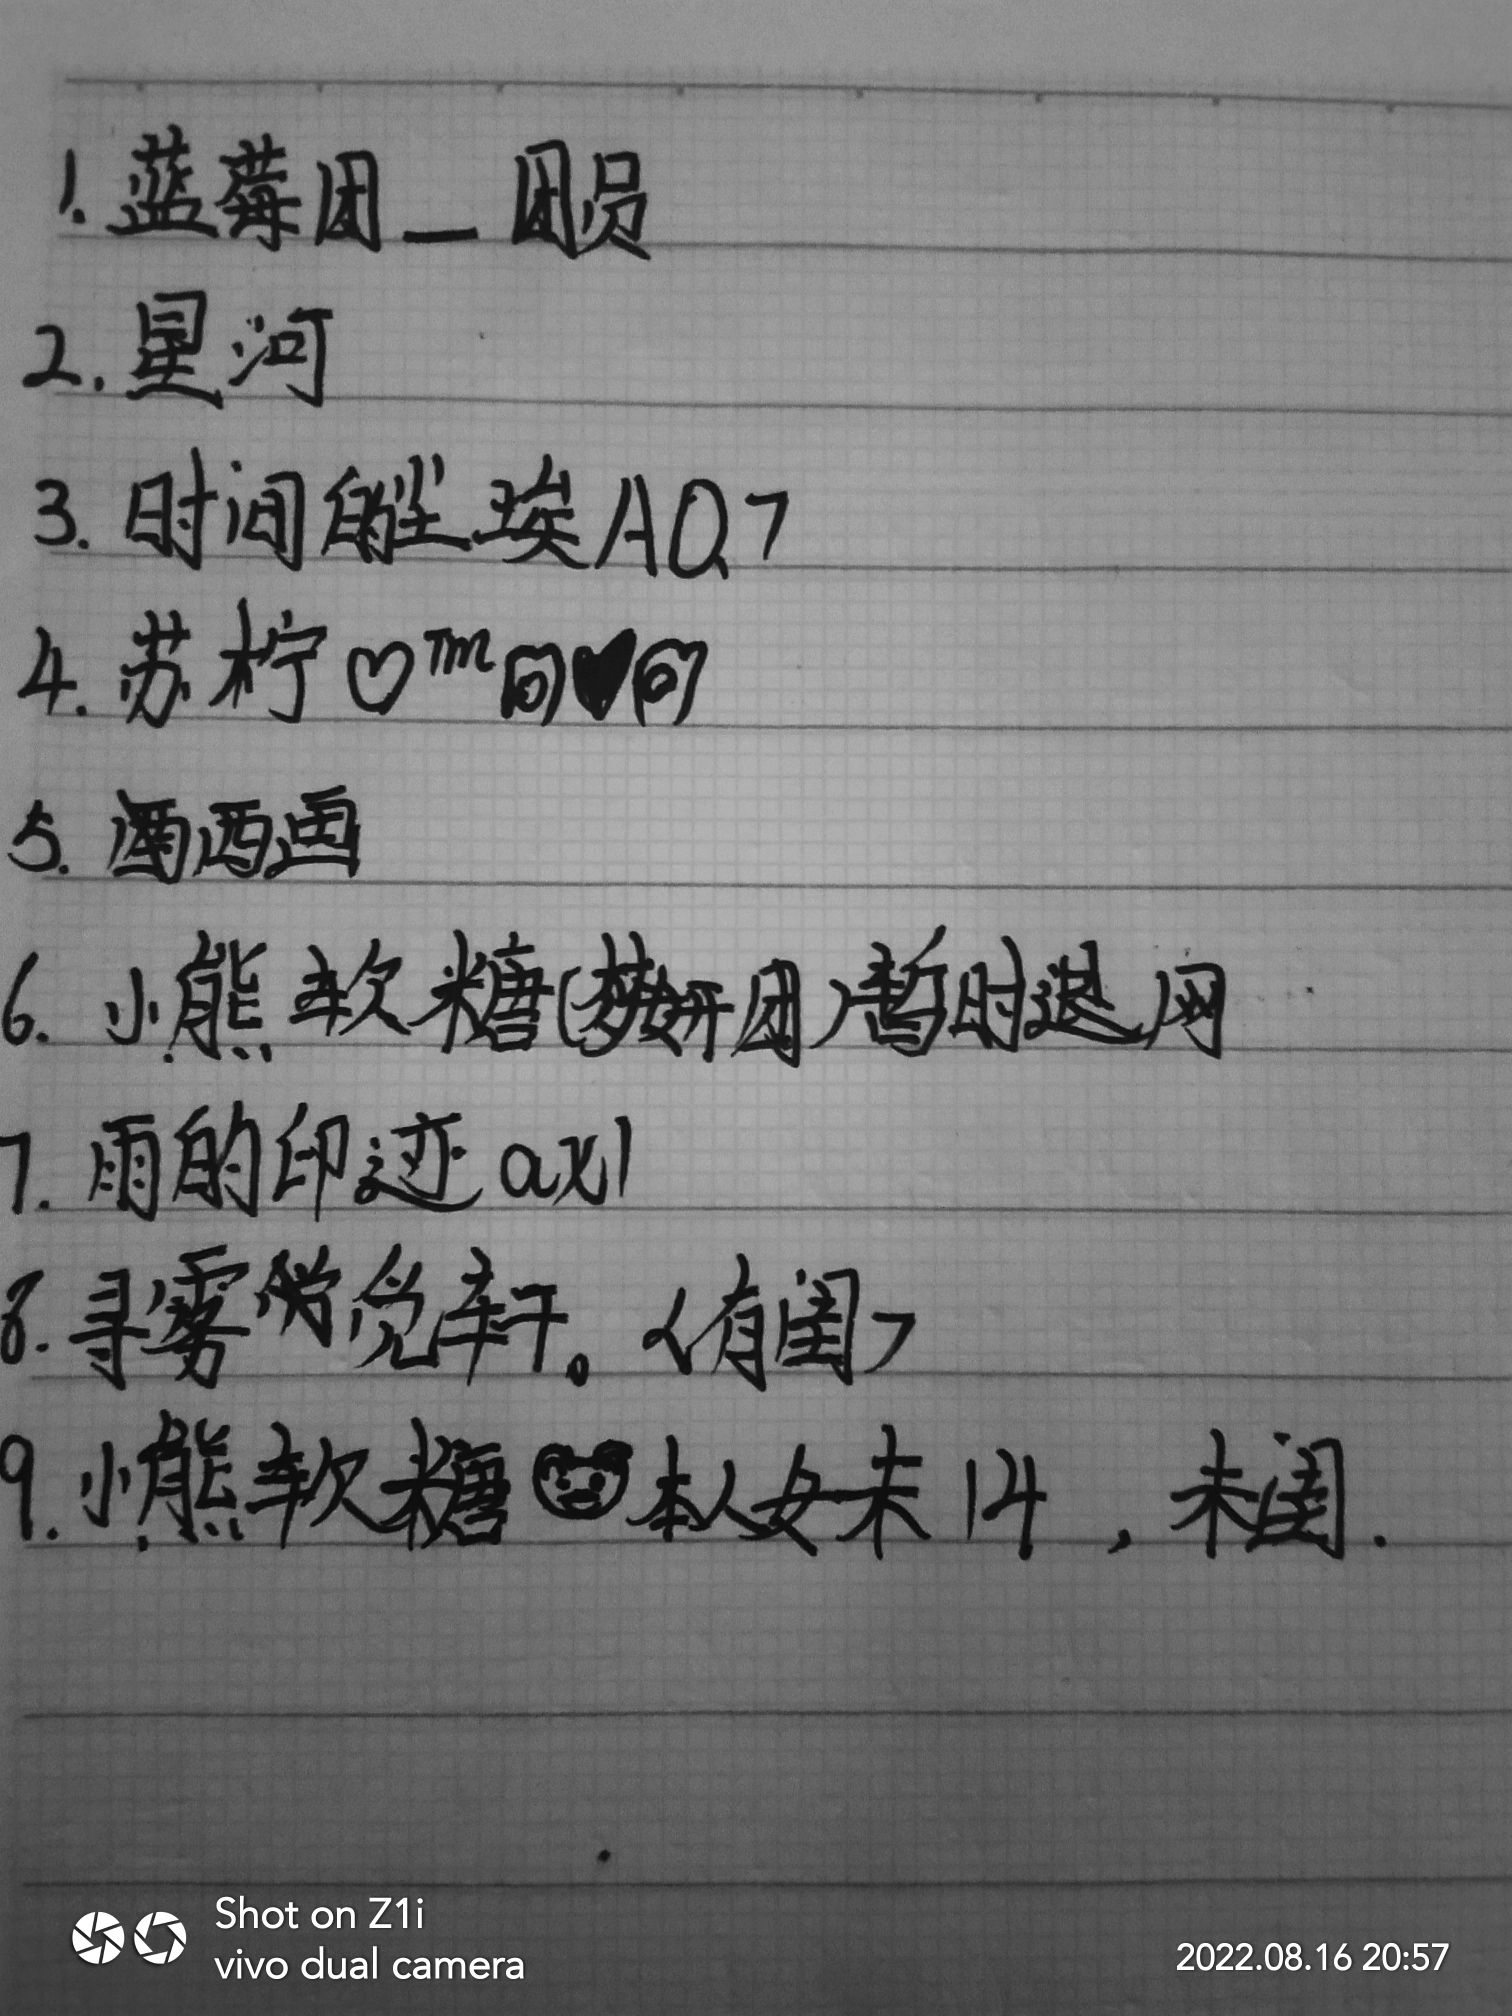 1. 蓝莓团_团员
2. 星河
3. 时间的尘埃AQ7
4. 苏柠♡™ণ♥ণ
5. 酒西画
6. 小熊软糖(梦妍团)暂时退网
7. 雨的印迹axl
8. 寻雾 觉轩。<有闺>
9. 小熊软糖🐻本人女未14，未闺.
Shot on Z1i
vivo dual camera
2022.08.16 20:57